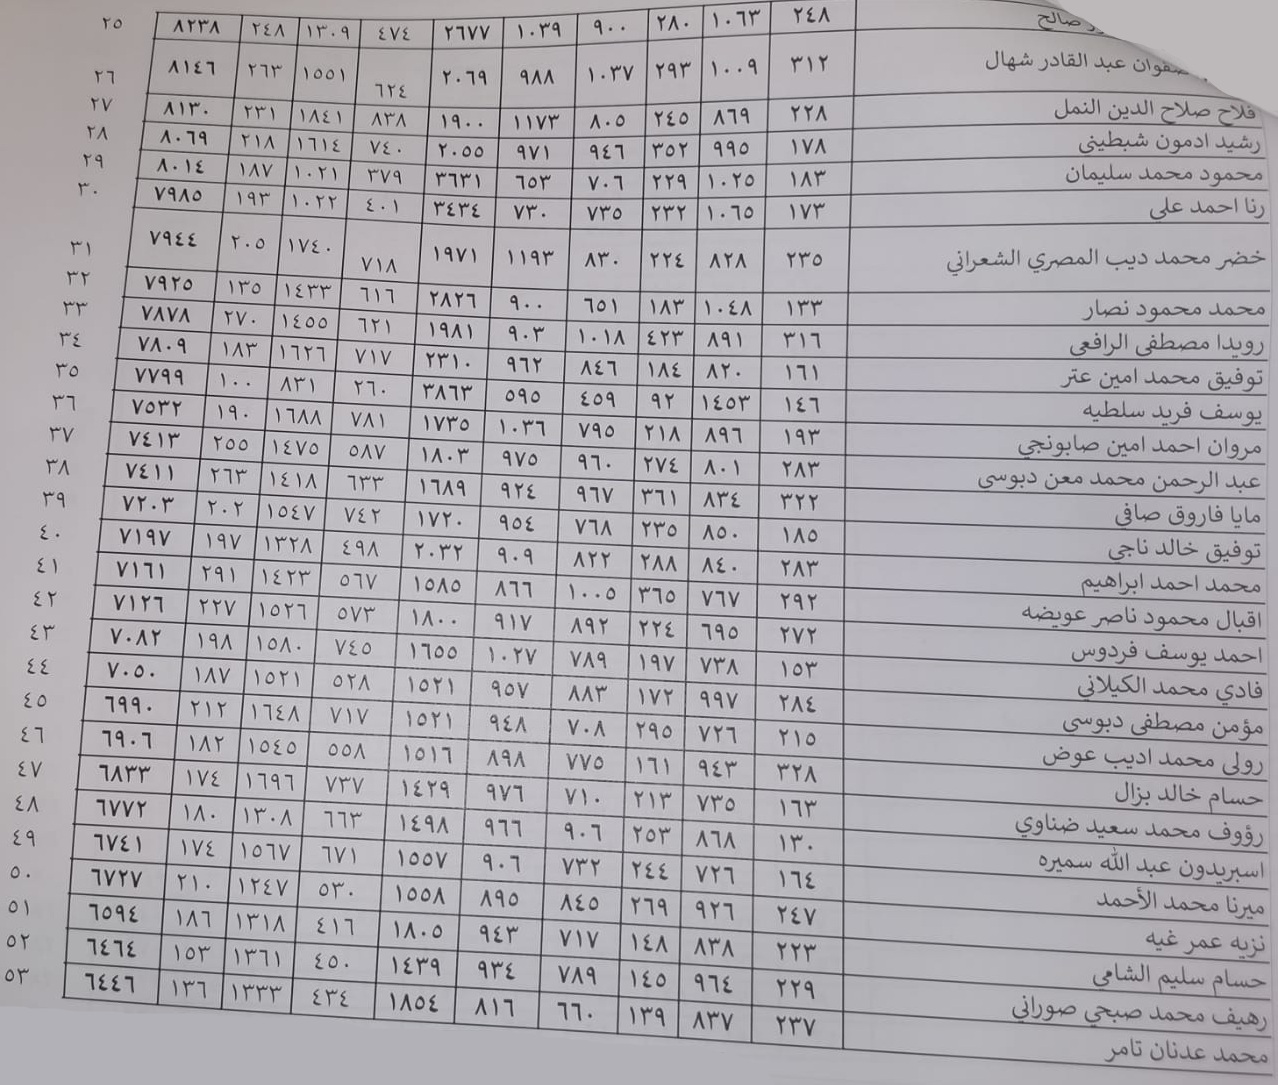 صالح ٢٤٨ ١٠٦٣ ٢٨٠ ٩٠٠ ١٠٣٩ ٢٦٧٧ ٤٧٤ ١٣٠٩ ٢٤٨ ٨٢٣٨ ٢٥
صفوان عبد القادر شهال ٣١٢ ١٠٠٩ ٢٩٣ ١٠٣٧ ٩٨٨ ٢٠٦٩ ٦٢٤ ١٥٥١ ٢٦٣ ٨١٤٦ ٢٦
فلاح صلاح الدين النمل ٢٢٨ ٨٦٩ ٢٤٥ ٨٠٥ ١١٧٣ ١٩٠٠ ٨٣٨ ١٨٤١ ٢٣١ ٨١٣٠ ٢٧
رشيد ادمون شبطيني ١٧٨ ٩٩٥ ٣٥٢ ٩٤٦ ٩٧١ ٢٠٥٥ ٧٤٠ ١٦١٤ ٢١٨ ٨٠٦٩ ٢٨
محمود محمد سليمان ١٨٣ ١٠٢٥ ٢٢٩ ٧٠٦ ٦٥٣ ٣٦٣١ ٣٧٩ ١٠٢١ ١٨٧ ٨٠١٤ ٢٩
رنا احمد علي ١٧٣ ١٠٦٥ ٢٣٢ ٧٣٥ ٧٣٠ ٣٤٣٤ ٤٠١ ١٠٢٢ ١٩٣ ٧٩٨٥ ٣٠
خضر محمد ديب المصري الشعراني ٢٣٥ ٨٢٨ ٢٢٤ ٨٣٠ ١١٩٣ ١٩٧١ ٧١٨ ١٧٤٠ ٢٠٥ ٧٩٤٤ ٣١
محمد محمود نصار ١٣٣ ١٠٤٨ ١٨٣ ٦٥١ ٩٠٠ ٢٨٢٦ ٦١٦ ١٤٣٣ ١٣٥ ٧٩٢٥ ٣٢
رويدا مصطفى الرافعي ٣١٦ ٨٩١ ٤٢٣ ١٠١٨ ٩٠٣ ١٩٨١ ٦٢١ ١٤٥٥ ٢٧٠ ٧٨٧٨ ٣٣
توفيق محمد امين عتر ١٦١ ٨٢٠ ١٨٤ ٨٤٦ ٩٦٢ ٢٣١٠ ٧١٧ ١٦٢٦ ١٨٣ ٧٨٠٩ ٣٤
يوسف فريد سلطيه ١٤٦ ١٤٥٣ ٩٢ ٤٥٩ ٥٩٥ ٣٨٦٣ ٢٦٠ ٨٣١ ١٠٠ ٧٧٩٩ ٣٥
مروان احمد امين صابونجي ١٩٣ ٨٩٦ ٢١٨ ٧٩٥ ١٠٣٦ ١٧٣٥ ٧٨١ ١٦٨٨ ١٩٠ ٧٥٣٢ ٣٦
عبد الرحمن محمد معن دبوسي ٢٨٣ ٨٠١ ٢٧٤ ٩٦٠ ٩٧٥ ١٨٠٣ ٥٨٧ ١٤٧٥ ٢٥٥ ٧٤١٣ ٣٧
مايا فاروق صافي ٣٢٢ ٨٣٤ ٣٦١ ٩٦٧ ٩٢٤ ١٦٨٩ ٦٣٣ ١٤١٨ ٢٦٣ ٧٤١١ ٣٨
توفيق خالد ناجي ١٨٥ ٨٥٠ ٢٣٥ ٧٦٨ ٩٥٤ ١٧٢٠ ٧٤٢ ١٥٤٧ ٢٠٢ ٧٢٠٣ ٣٩
محمد احمد ابراهيم ٢٨٣ ٨٤٠ ٢٨٨ ٨٢٢ ٩٠٩ ٢٠٣٢ ٤٩٨ ١٣٢٨ ١٩٧ ٧١٩٧ ٤٠
اقبال محمود ناصر عويضه ٢٩٢ ٧٦٧ ٣٦٥ ١٠٠٥ ٨٦٦ ١٥٨٥ ٥٦٧ ١٤٢٣ ٢٩١ ٧١٦١ ٤١
احمد يوسف فردوس ٢٧٢ ٦٩٥ ٢٢٤ ٨٩٢ ٩١٧ ١٨٠٠ ٥٧٣ ١٥٢٦ ٢٢٧ ٧١٢٦ ٤٢
فادي محمد الكيلاني ١٥٣ ٧٣٨ ١٩٧ ٧٨٩ ١٠٢٧ ١٦٥٥ ٧٤٥ ١٥٨٠ ١٩٨ ٧٠٨٢ ٤٣
مؤمن مصطفى دبوسي ٢٨٤ ٩٩٧ ١٧٢ ٨٨٣ ٩٥٧ ١٥٢١ ٥٢٨ ١٥٢١ ١٨٧ ٧٠٥٠ ٤٤
رولى محمد اديب عوض ٢١٥ ٧٢٦ ٢٩٥ ٧٠٨ ٩٤٨ ١٥٢١ ٧١٧ ١٦٤٨ ٢١٢ ٦٩٩٠ ٤٥
حسام خالد بزال ٣٢٨ ٩٤٣ ١٦١ ٧٧٥ ٨٩٨ ١٥١٦ ٥٥٨ ١٥٤٥ ١٨٢ ٦٩٠٦ ٤٦
رؤوف محمد سعيد ضناوي ١٦٣ ٧٣٥ ٢١٣ ٧١٠ ٩٧٦ ١٤٢٩ ٧٣٧ ١٦٩٦ ١٧٤ ٦٨٣٣ ٤٧
اسبريدون عبد الله سميره ١٣٠ ٨٦٨ ٢٥٣ ٩٠٦ ٩٦٦ ١٤٩٨ ٦٦٣ ١٣٠٨ ١٨٠ ٦٧٧٢ ٤٨
ميرنا محمد الأحمد ١٦٤ ٧٢٦ ٢٤٤ ٧٣٢ ٩٠٦ ١٥٥٧ ٦٧١ ١٥٦٧ ١٧٤ ٦٧٤١ ٤٩
نزيه عمر غيه ٢٤٧ ٩٢٦ ٢٦٩ ٨٤٥ ٨٩٥ ١٥٥٨ ٥٣٠ ١٢٤٧ ٢١٠ ٦٧٢٧ ٥٠
حسام سليم الشامي ٢٢٣ ٨٣٨ ١٤٨ ٧١٧ ٩٤٣ ١٨٠٥ ٤١٦ ١٣١٨ ١٨٦ ٦٥٩٤ ٥١
رهيف محمد صبحي صوراني ٢٢٩ ٩٦٤ ١٤٥ ٧٨٩ ٩٣٤ ١٤٣٩ ٤٥٠ ١٣٦١ ١٥٣ ٦٤٦٤ ٥٢
محمد عدنان تامر ٢٣٧ ٨٣٧ ١٣٩ ٦٦٠ ٨١٦ ١٨٥٤ ٤٣٤ ١٣٣٣ ١٣٦ ٦٤٤٦ ٥٣